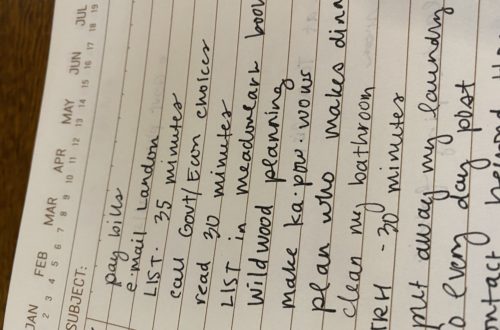 JAN FEB MAR APR MAY JUN JUL
2 3 4 5 6 7 8 9 10 11 12 13 14 15 16 17 18 19
SUBJECT:
pay bills
e-mail Landon
LIST - 35 minutes
call Govt/Econ choices
read 30 minutes
LIST in meadowlark
Wildwood planning
make ka.pow.wows
plan who makes
clean my bathroom
- 30 minutes
away my laundry
every day post